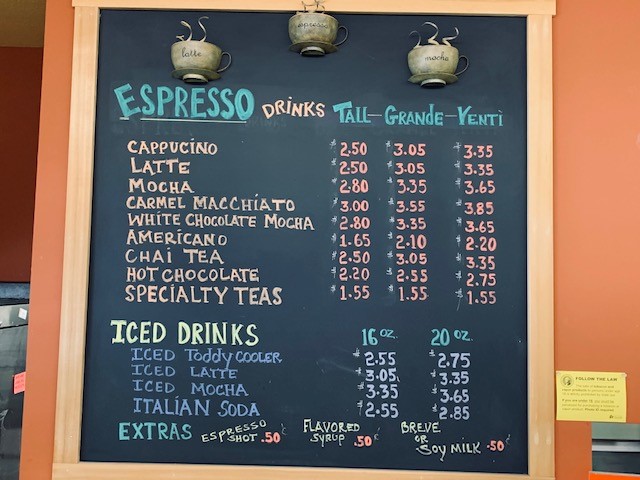 latte espresso mocha
ESPRESSO DRINKS TALL - GRANDE - VENTI
CAPPUCINO $2.50 $3.05 $3.35
LATTE $2.50 $3.05 $3.35
MOCHA $2.80 $3.35 $3.65
CARMEL MACCHIATO $3.00 $3.55 $3.85
WHITE CHOCOLATE MOCHA $2.80 $3.35 $3.65
AMERICANO $1.65 $2.10 $2.20
CHAI TEA $2.50 $3.05 $3.35
HOT CHOCOLATE $2.20 $2.55 $2.75
SPECIALTY TEAS $1.55 $1.55 $1.55
ICED DRINKS 16 OZ. 20 OZ.
ICED TODDY COOLER $2.55 $2.75
ICED LATTE $3.05 $3.35
ICED MOCHA $3.35 $3.65
ITALIAN SODA $2.55 $2.85
EXTRAS ESPRESSO SHOT .50¢ FLAVORED SYRUP .50¢ BREVE OR SOY MILK .50¢
FOLLOW THE LAW